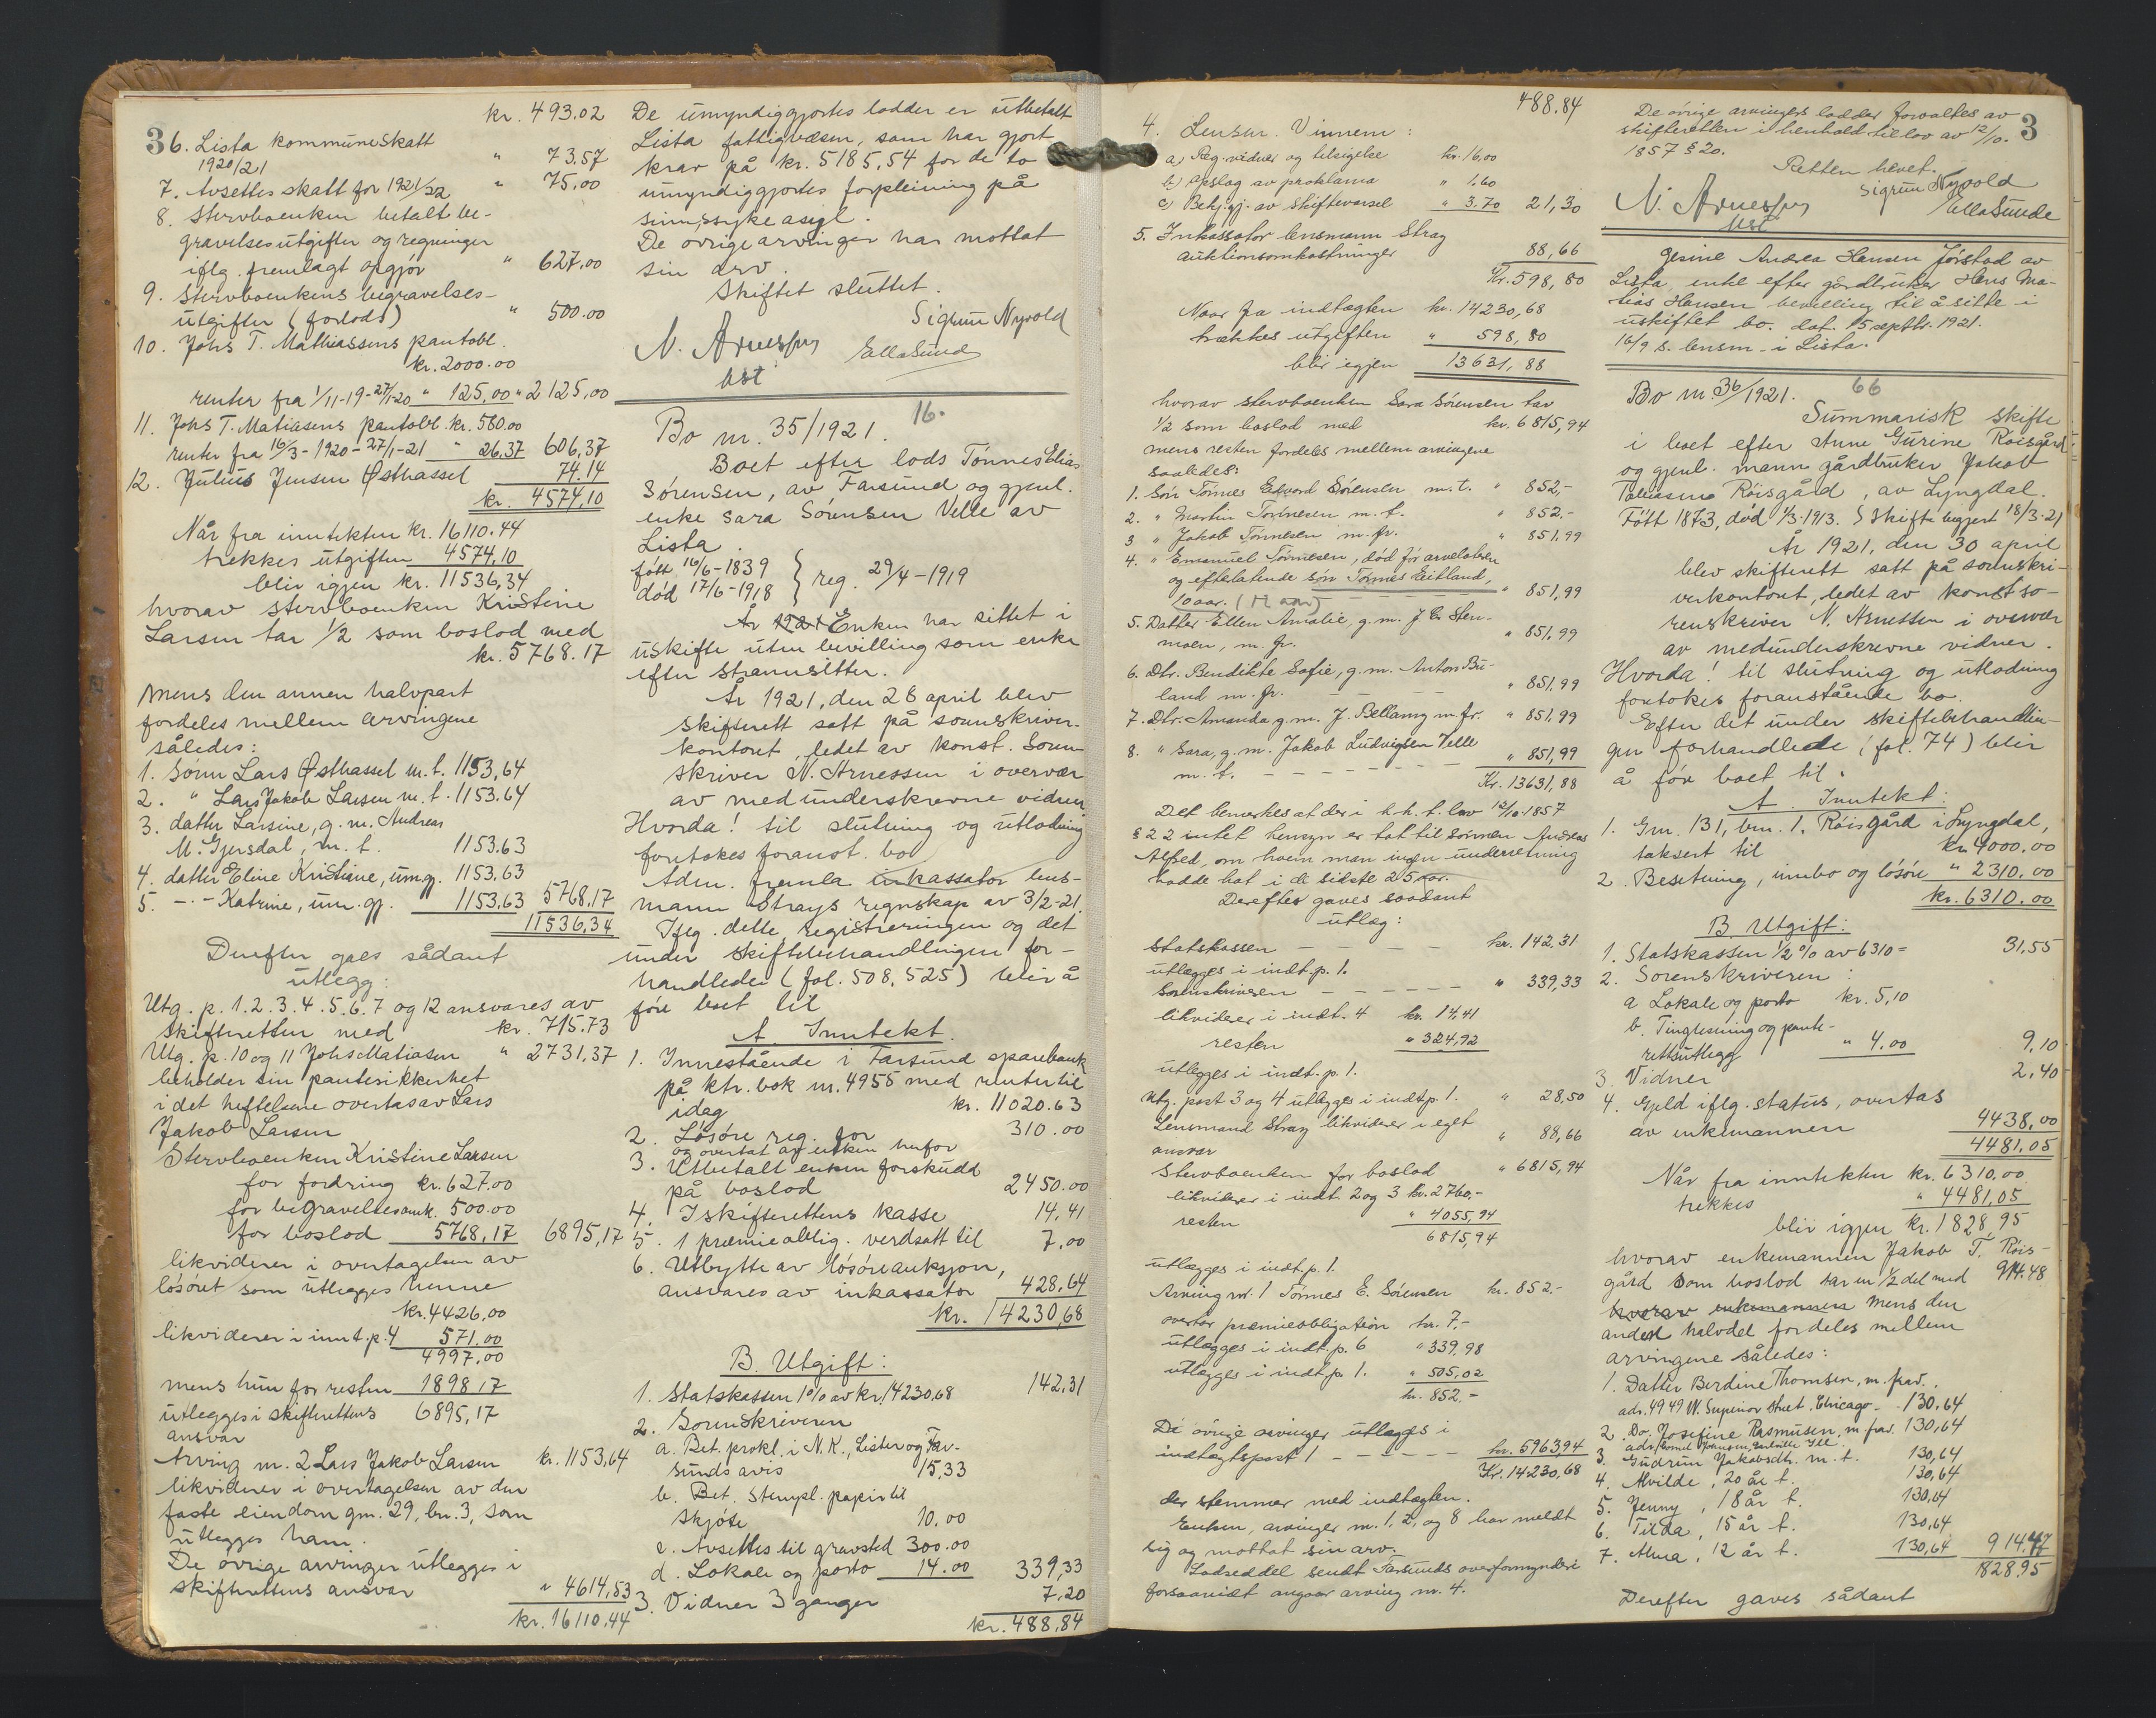 kr. 493.02
3
6. Lista kommuneskatt
1920/21 " 73.57
7. Avsettes skatt for 1921/22 " 75,00
8. Stervboenken betalt be-
gravelsesutgifter og regninger
iflg. fremlagt opgjør " 627.00
9. Stervboenkens begravelses-
utgifter (forlods) " 500.00
10. Johs T. Mathiassens pantobl.
kr. 2000.00
renter fra 1/11-19-27/1-20 " 125,00 " 2125,00
11. Johs T. Matiasens pantobl. kr. 580.00
renter fra 16/3-1920-27/1-21 " 26,37 606,37
12. Julius Jensen Østhassel 74.14
kr. 4574,10
Når fra inntekten kr. 16110.44
trekkes utgiften 4574,10
blir igjen kr. 11536,34
hvorav stervboenken Kristine
Larsen tar 1/2 som boslod med
kr. 5768.17
mens den annen halvpart
fordeles mellem arvingene
således:
1. Sønn Lars Østhassel m.t. 1153,64
2. " Lars Jakob Larsen m.t. 1153.64
3. datter Larsine, g.m. Andreas
M. Gjersdal, m.t. 1153.63
4. datter Eline Kristine, um.gj. 1153.63
5. -"- Katrine, um.gj. 1153.63 5768,17
11536,34
Derefter gaes sådant
utlegg:
Utg. p. 1.2.3.4.5.6.7 og 12 ansvares av
skifteretten med kr. 715.73
Utg. p. 10 og 11 Johs Matiasen " 2731,37
beholder sin pantesikkerhet
i det heftelsene overtas av Lars
Jakob Larsen
Stervboenken Kristine Larsen
for fordring kr. 627.00
for begravelsesomk. 500.00
for boslod 5768,17 6895,17
likviderer i overtagelsen av
løsøret som utlegges henne
kr. 4426,00
likviderer i innt.p. 4 571.00
4997,00
mens hun for resten 1898,17
utlegges i skifterettens 6895,17
ansvar
Arving nr. 2 Lars Jakob Larsen kr. 1153,64
likviderer i overtagelsen av den
faste eiendom gnr. 29, br. 3, som
utlegges ham.
De øvrige arvinger utlegges i
skifterettens ansvar " 4614,53
kr. 16110,44
De umyndiggjortes lodder er utbetalt
Lista fattigvæsen, som har gjort
krav på kr. 5185,54 for de to
umyndiggjortes forpleining på
sinnssykeasyl.
De øvrige arvinger har mottat
sin arv.
Skiftet sluttet.
Sigrun Nyvold
N. Arnessen
kst
Ella Sunde
Bo nr. 35/1921. 16.
Boet efter lods Tønnes Elias
Sørensen, av Farsund og gjenl.
enke Sara Sørensen Velle av
Lista.
født 16/6-1839
død 17/6-1918 } reg. 29/4-1919
År 1921 Enken har sittet i
uskifte uten bevilling som enke
efter strannsitter.
År 1921, den 28 april blev
skifterett satt på sorenskriver-
kontoret, ledet av konst. Soren
skriver N. Arnessen i overvær
av medunderskrevne vidner
Hvorda! til slutning og utlodning
foretokes foranst. bo
Adm. fremla inkassator lens-
mann Strays regnskap av 3/2-21.
Iflg. dette, registreringen og det
under skiftebehandlingen for-
handlede (fol. 508, 525) blir å
føre boet til
A. Inntekt.
1. Innestående i Farsund sparebank
på ktr. bok nr. 4958 med renter til
idag kr. 11020.63
2. Løsøre reg. for 310.00
og overtat av enken herfor
3. Utbetalt enken forskudd
på boslod 2450.00
4. I skifterettens kasse 14,41
5. 1 premieoblig. verdsatt til 7,00
6. Utbytte av løsøreauksjon,
ansvares av inkassator 428,64
kr. 14230,68
B. Utgift:
1. Statskassen 1% av kr. 14230,68 142,31
2. Sorenskriveren
a. Bet. prokl. i N.K., Lister og Far-
sunds avis 15,33
b. Bet. stempl. papir til
skjøte 10.00
c. Avsettes til gravsted 300.00
d. Lokale og porto 14.00 339,33
3. Vidner 3 ganger 7,20
kr. 488,84
488.84
4. Lensm. Vinnem:
a) Reg. vidner og tilsigelse kr. 16,00
b) Opslag av proklama " 1.60
c) Bekj.gj. av skiftevarsel " 3.70 21,30
5. Inkassator lensmann Stray
auktionsomkostninger 88,66
Kr. 598,80
Naar fra indtægten kr. 14230,68
trækkes utgiften " 598,80
blir igjen 13631,88
hvorav stervboenken Sara Sørensen tar
1/2 som boslod med kr. 6815,94
mens resten fordeles mellem arvingene
saaledes:
1. Søn Tønnes Edvard Sørensen m.t. " 852,-
2. " Martin Tønnesen m.t. " 852.-
3. " Jakob Tønnesen m.fr. " 851,99
4. " Emanuel Tønnesen, død før arveladeren
og efterlatende søn Tønnes Eitland,
10 aar. (12 aar) " 851,99
5. Datter Ellen Amalie, g.m. J. E. Sten-
moen, m.fr. " 851,99
6. Dtr. Bendikte Sofie, g.m. Anton Bu-
land m.fr. " 851,99
7. Dtr. Amanda g.m. J. Bellamy m.fr. " 851,99
8. " Sara, g.m. Jakob Ludvigsen Velle
m.t. " 851,99
Kr. 13631,88
Det bemerkes at der i h.h.t. lov 12/10-1857
§ 22 intet hensyn er tat til sønnen Andreas
Alfred, om hvem man ingen underretning
hadde hat i de sidste 25 aar.
Derefter gaves saadant
utlæg:
Statskassen kr. 142,31
utlægges i indt. p. 1.
Sorenskriveren " 339,33
likviderer i indt. 4 kr. 14,41
resten " 324,92
utlegges i indt. p. 1.
Utg. post 3 og 4 utlægges i indt.p. 1. " 28,50
Lensmand Stray likviderer i eget
ansvar " 88,66
Stervboenken for boslod " 6815,94
likviderer i indt. 2 og 3 kr. 2760,-
resten " 4055,94
6815,94
utlægges i indt. p. 1.
Arving nr. 1 Tønnes E. Sørensen kr. 852.-
overtar præmieobligation kr. 7,-
utlægges i indt. p. 6 " 339,98
utlægges i indt. p. 1. " 505,02
kr. 852,-
De øvrige arvinger utlægges i
indtægtspost 1 kr. 5963,94
Kr. 14230,68
der stemmer med indtægten.
Enken, arvinger nr. 1, 2, og 8 har meldt
sig og mottat sin arv.
Lodseddel sendt Farsunds overformynderi
forsaavidt angaar arving nr. 4.
De øvrige arvingers lodder forvaltes av
skifteretten i henhold til lov av 12/10. 3
1857 § 20.
Retten hevet.
Sigrun Nyvold
N. Arnessen
kst
Ella Sunde
Gesine Andrea Hansen Jørstad av
Lista, enke efter gårdbruker Hans Ma-
tias Hansen bevilling til å sitte i
uskiftet bo. dat. 15 septbr. 1921.
16/9 s. lensm. i Lista.
Bo nr. 36/1921. 66
Summarisk skifte
i boet efter Anne Gurine Røisgård
og gjenl. mann gårdbruker Jakob
Tobiassen Røisgård, av Lyngdal.
Født 1873, død 1/3-1913. Skifte begjert 18/3-21
År 1921, den 30 april
blev skifterett satt på sorenskri-
verkontoret, ledet av konst so-
renskriver N. Arnessen i overvær
av medunderskrevne vidner.
Hvorda! til slutning og utlodning
foretokes foranstående bo
Efter det under skiftebehandlin-
gen forhandlede (fol. 74) blir
å føre boet til.
A. Inntekt:
1. Gnr. 131, brn. 1, Røisgård i Lyngdal,
taksert til kr. 4000.00
2. Besetning, innbo og løsøre " 2310,00
kr. 6310.00
B Utgift:
1. Statskassen 1/2 % av 6310 = 31,55
2. Sorenskriveren:
a Lokale og porto kr. 5,10
b. Tinglesning og pante-
rettsutlegg " 4.00 9,10
3. Vidner 2,40
4. Gjeld iflg. status, overtas
av enkemannen 4438,00
4481,05
Når fra inntekten kr. 6310,00
trekkes " 4481,05
blir igjen kr. 1828,95
hvorav enkemannen Jakob T. Røis-
gård som boslod tar en 1/2 del med 914.48
hvorav enkemannen mens den
anden halvdel fordeles mellem
arvingene således:
1. Datter Berdine Thomsen, m. frav.
adr. 4949 W. Superior street, Chicago 130,64
2. Do. Josefine Rasmusen, m frav. 130,64
3. Gudrun Jakobsdtr. m.t. 130,64
4. Alvilde, 20 år t. 130,64
5. Jenny, 18 år t. 130,64
6. Tilda, 15 år t. 130,64
7. Alma, 12 år t. 130,64 914.47
1828,95
Derefter gaves sådant